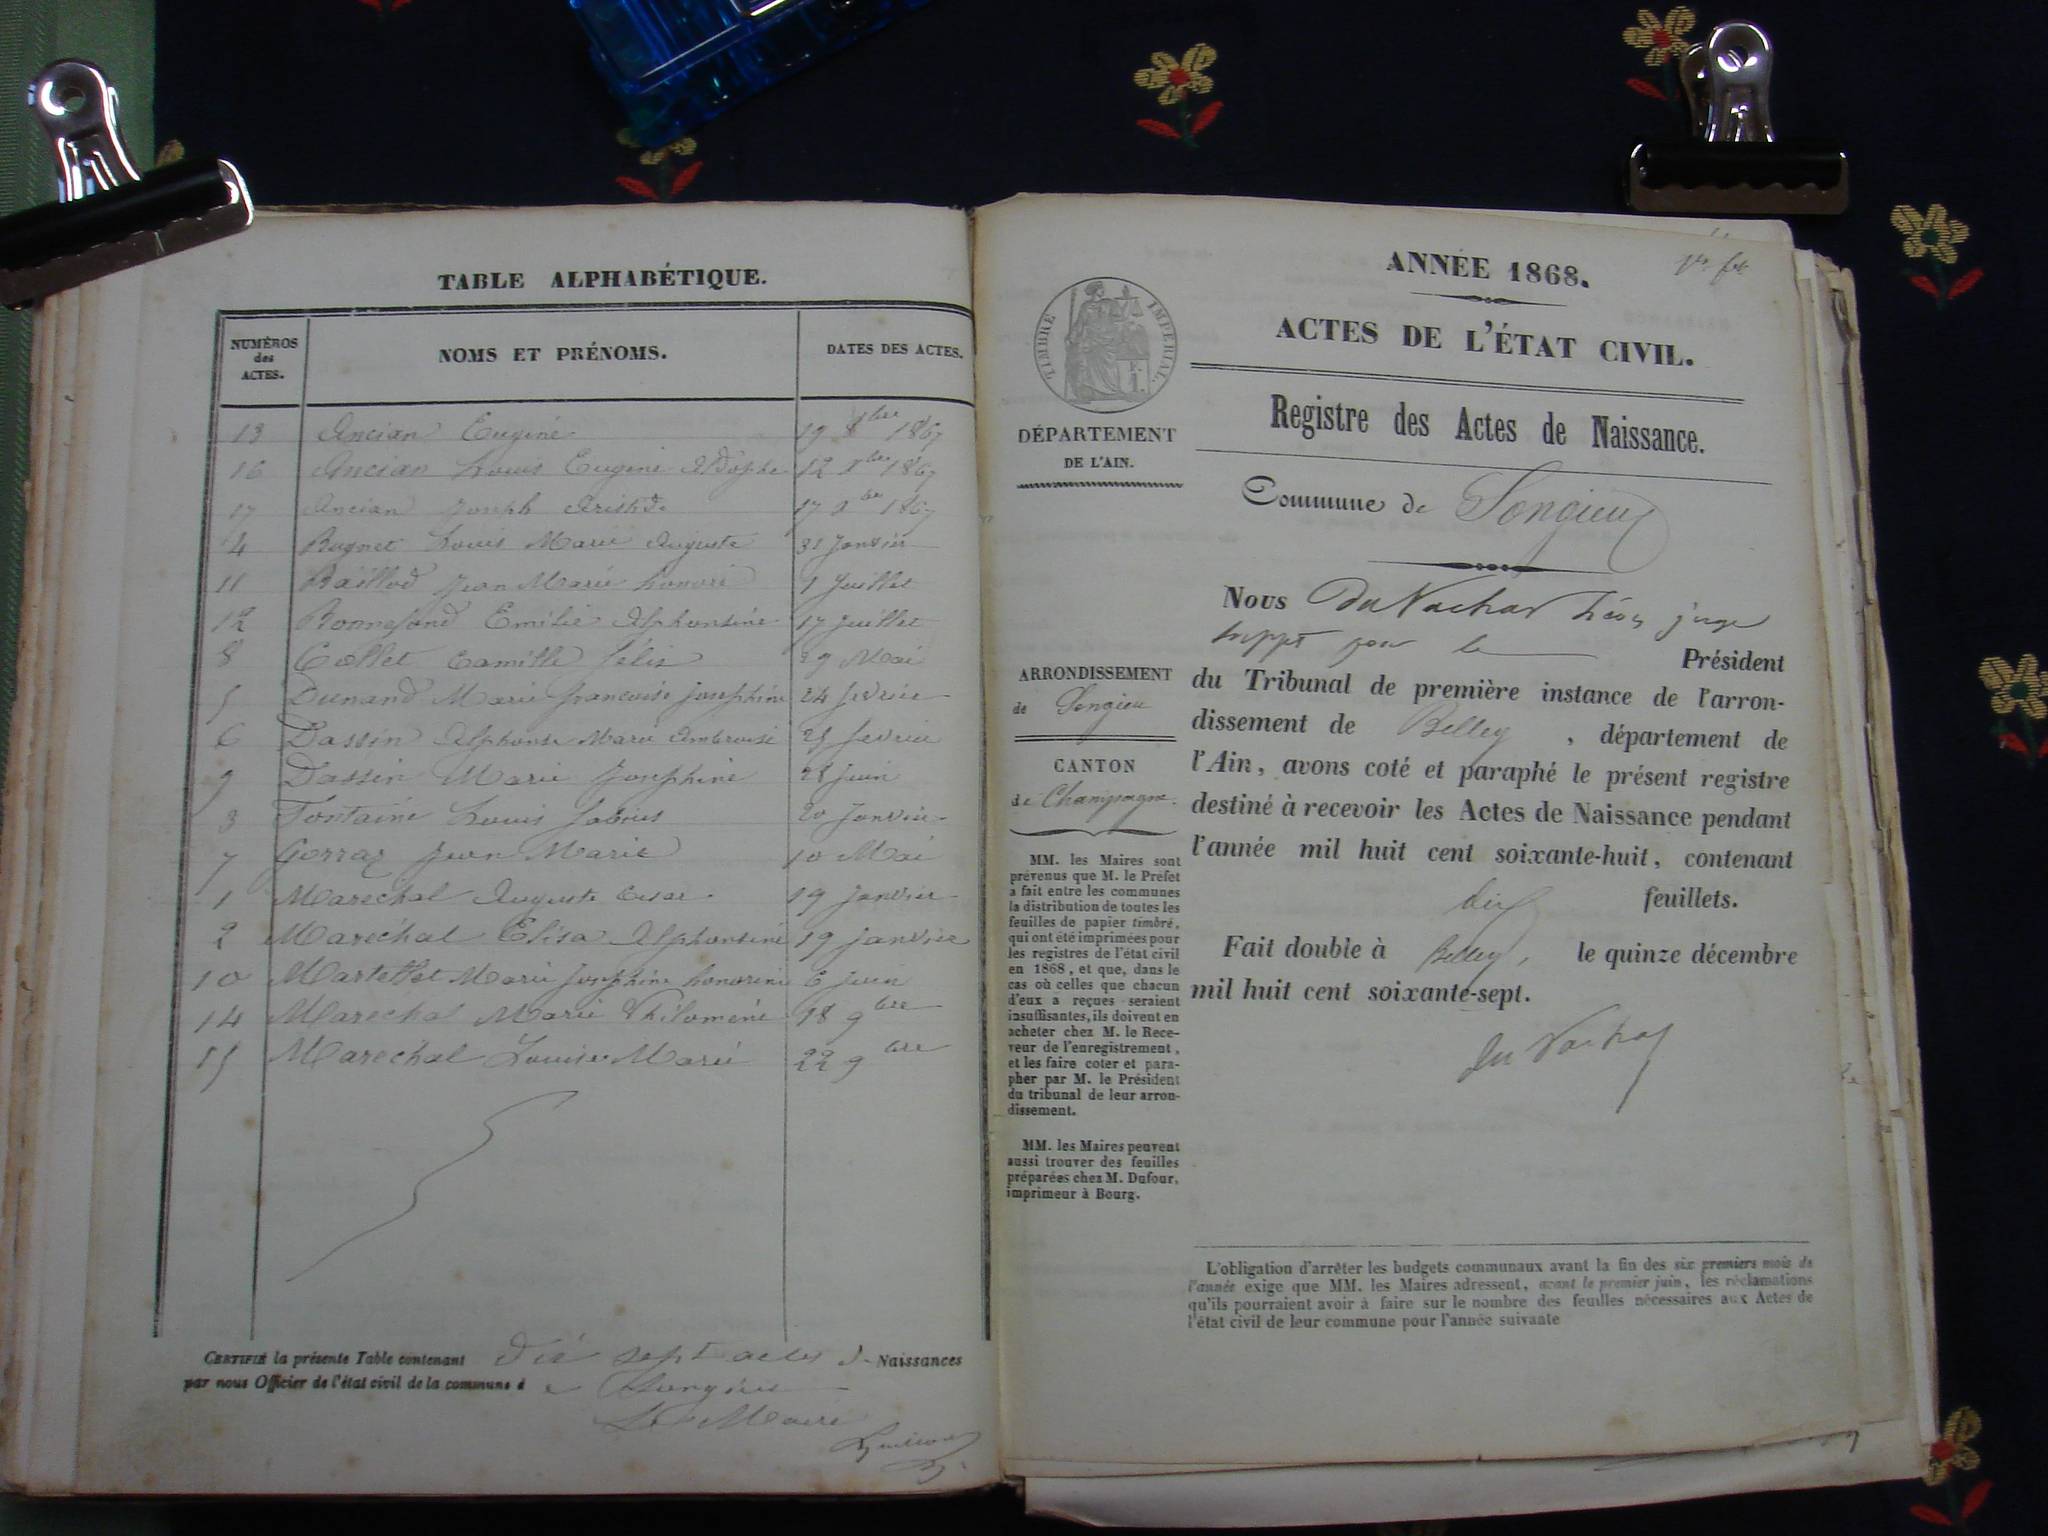 TABLE ALPHABÉTIQUE.
NUMÉROS des ACTES.
NOMS ET PRÉNOMS.
DATES DES ACTES.
13 Ancian Eugène 19 8bre 1867
16 Ancian Louis Eugène Adolphe 12 Xbre 1867
17 Ancian Joseph Aristide 17 Xbre 1867
4 Bugnet Louis Marie Auguste 31 Janvier
11 Baillod Jean Marie honoré 1 Juillet
12 Bonnefond Emilie Alphonsine 17 Juillet
8 Collet Camille félix 29 Mai
5 Dunand Marie françoise Josephine 24 fevrier
6 Dassin Alphonse Marie Ambroise 25 fevrier
9 Dassin Marie Josephine 28 Juin
3 Fontaine Louis fabius 20 Janvier
7 Gorraz Jean Marie 10 Mai
1 Maréchal Auguste Cesar 19 Janvier
2 Maréchal Elisa Alphonsine 19 Janvier
10 Martellet Marie Josephine honorine 6 Juin
14 Maréchal Marie Philomène 18 9bre
15 Maréchal Louise Marie 22 9bre
CERTIFIÉ la présente Table contenant Dix sept actes de Naissances
par nous Officier de l'état civil de la commune de Songieu
Le Maire
ANNÉE 1868.
ACTES DE L'ÉTAT CIVIL.
TIMBRE IMPÉRIAL.
Registre des Actes de Naissance.
DÉPARTEMENT
DE L'AIN.
Commune de Songieu
Nous Du Vachat Léon juge
suppt pour le Président
du Tribunal de première instance de l'arron-
dissement de Belley, département de
l'Ain, avons coté et paraphé le présent registre
destiné à recevoir les Actes de Naissance pendant
l'année mil huit cent soixante-huit, contenant
dix feuillets.
Fait double à Belley, le quinze décembre
mil huit cent soixante-sept.
du Vachat
ARRONDISSEMENT
de Songieu
CANTON
de Champagne.
MM. les Maires sont
prévenus que M. le Préfet
a fait entre les communes
la distribution de toutes les
feuilles de papier timbré,
qui ont été imprimées pour
les registres de l'état civil
en 1868, et que, dans le
cas où celles que chacun
d'eux a reçues seraient
insuffisantes, ils doivent en
acheter chez M. le Rece-
veur de l'enregistrement,
et les faire coter et para-
pher par M. le Président
du tribunal de leur arron-
dissement.
MM. les Maires peuvent
aussi trouver des feuilles
préparées chez M. Dufour,
imprimeur à Bourg.
L'obligation d'arrêter les budgets communaux avant la fin des six premiers mois de
l'année exige que MM. les Maires adressent, avant le premier juin, les réclamations
qu'ils pourraient avoir à faire sur le nombre des feuilles nécessaires aux Actes de
l'état civil de leur commune pour l'année suivante